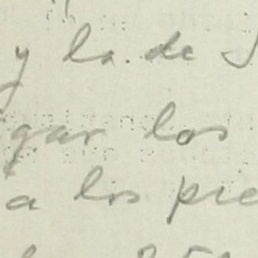 y la de
gar los
a los pie